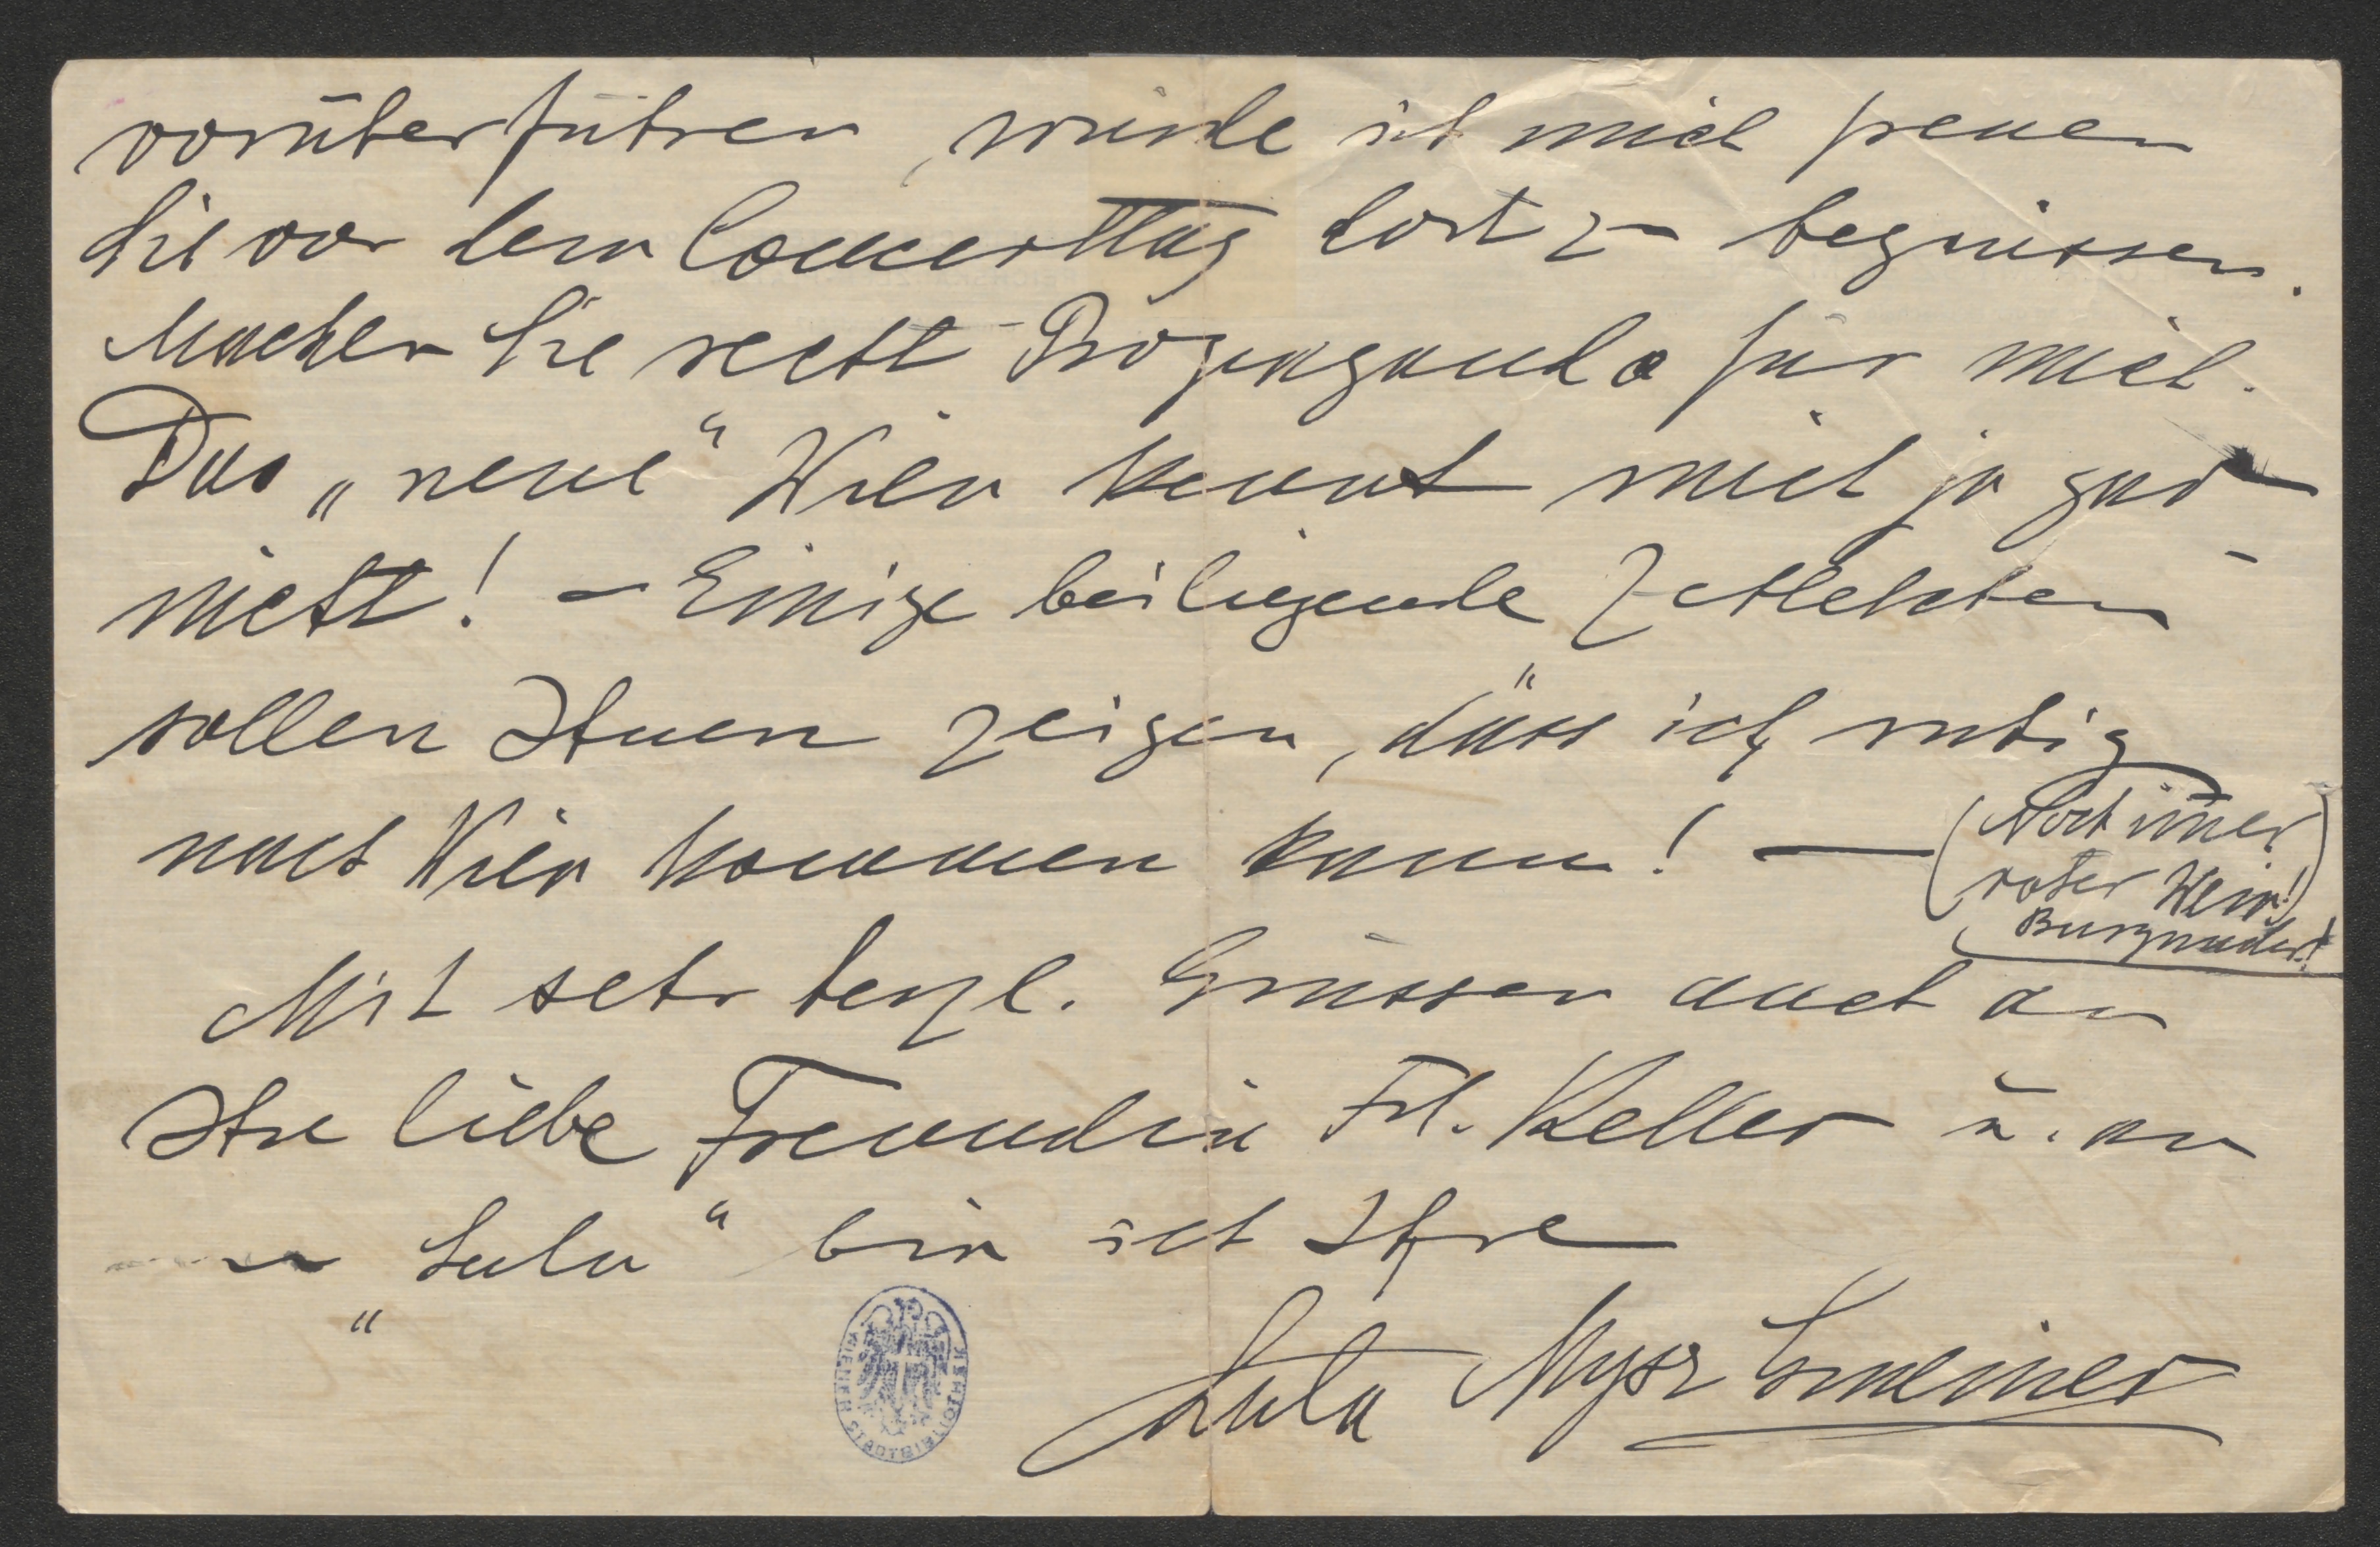 vorüberführen, würde ich mich freuen
Sie vor dem Concerttag dort zu begrüssen.
Machen Sie recht Propaganda für mich.
Das „neue“ Wien kennt mich ja gar
nicht! – Einige beiliegende Zettelchen
sollen Ihnen zeigen, dass ich ruhig
nach Wien kommen kann! —
(Noch immer
roter Wein!)
Burgunder!
Mit sehr herzl. Grüssen auch an
Ihre liebe Freundin Frl. Keller u. an
„Lulu“ bin ich Ihre
Lula Mysz Gmeiner
WIENER STADTBIBLIOTHEK